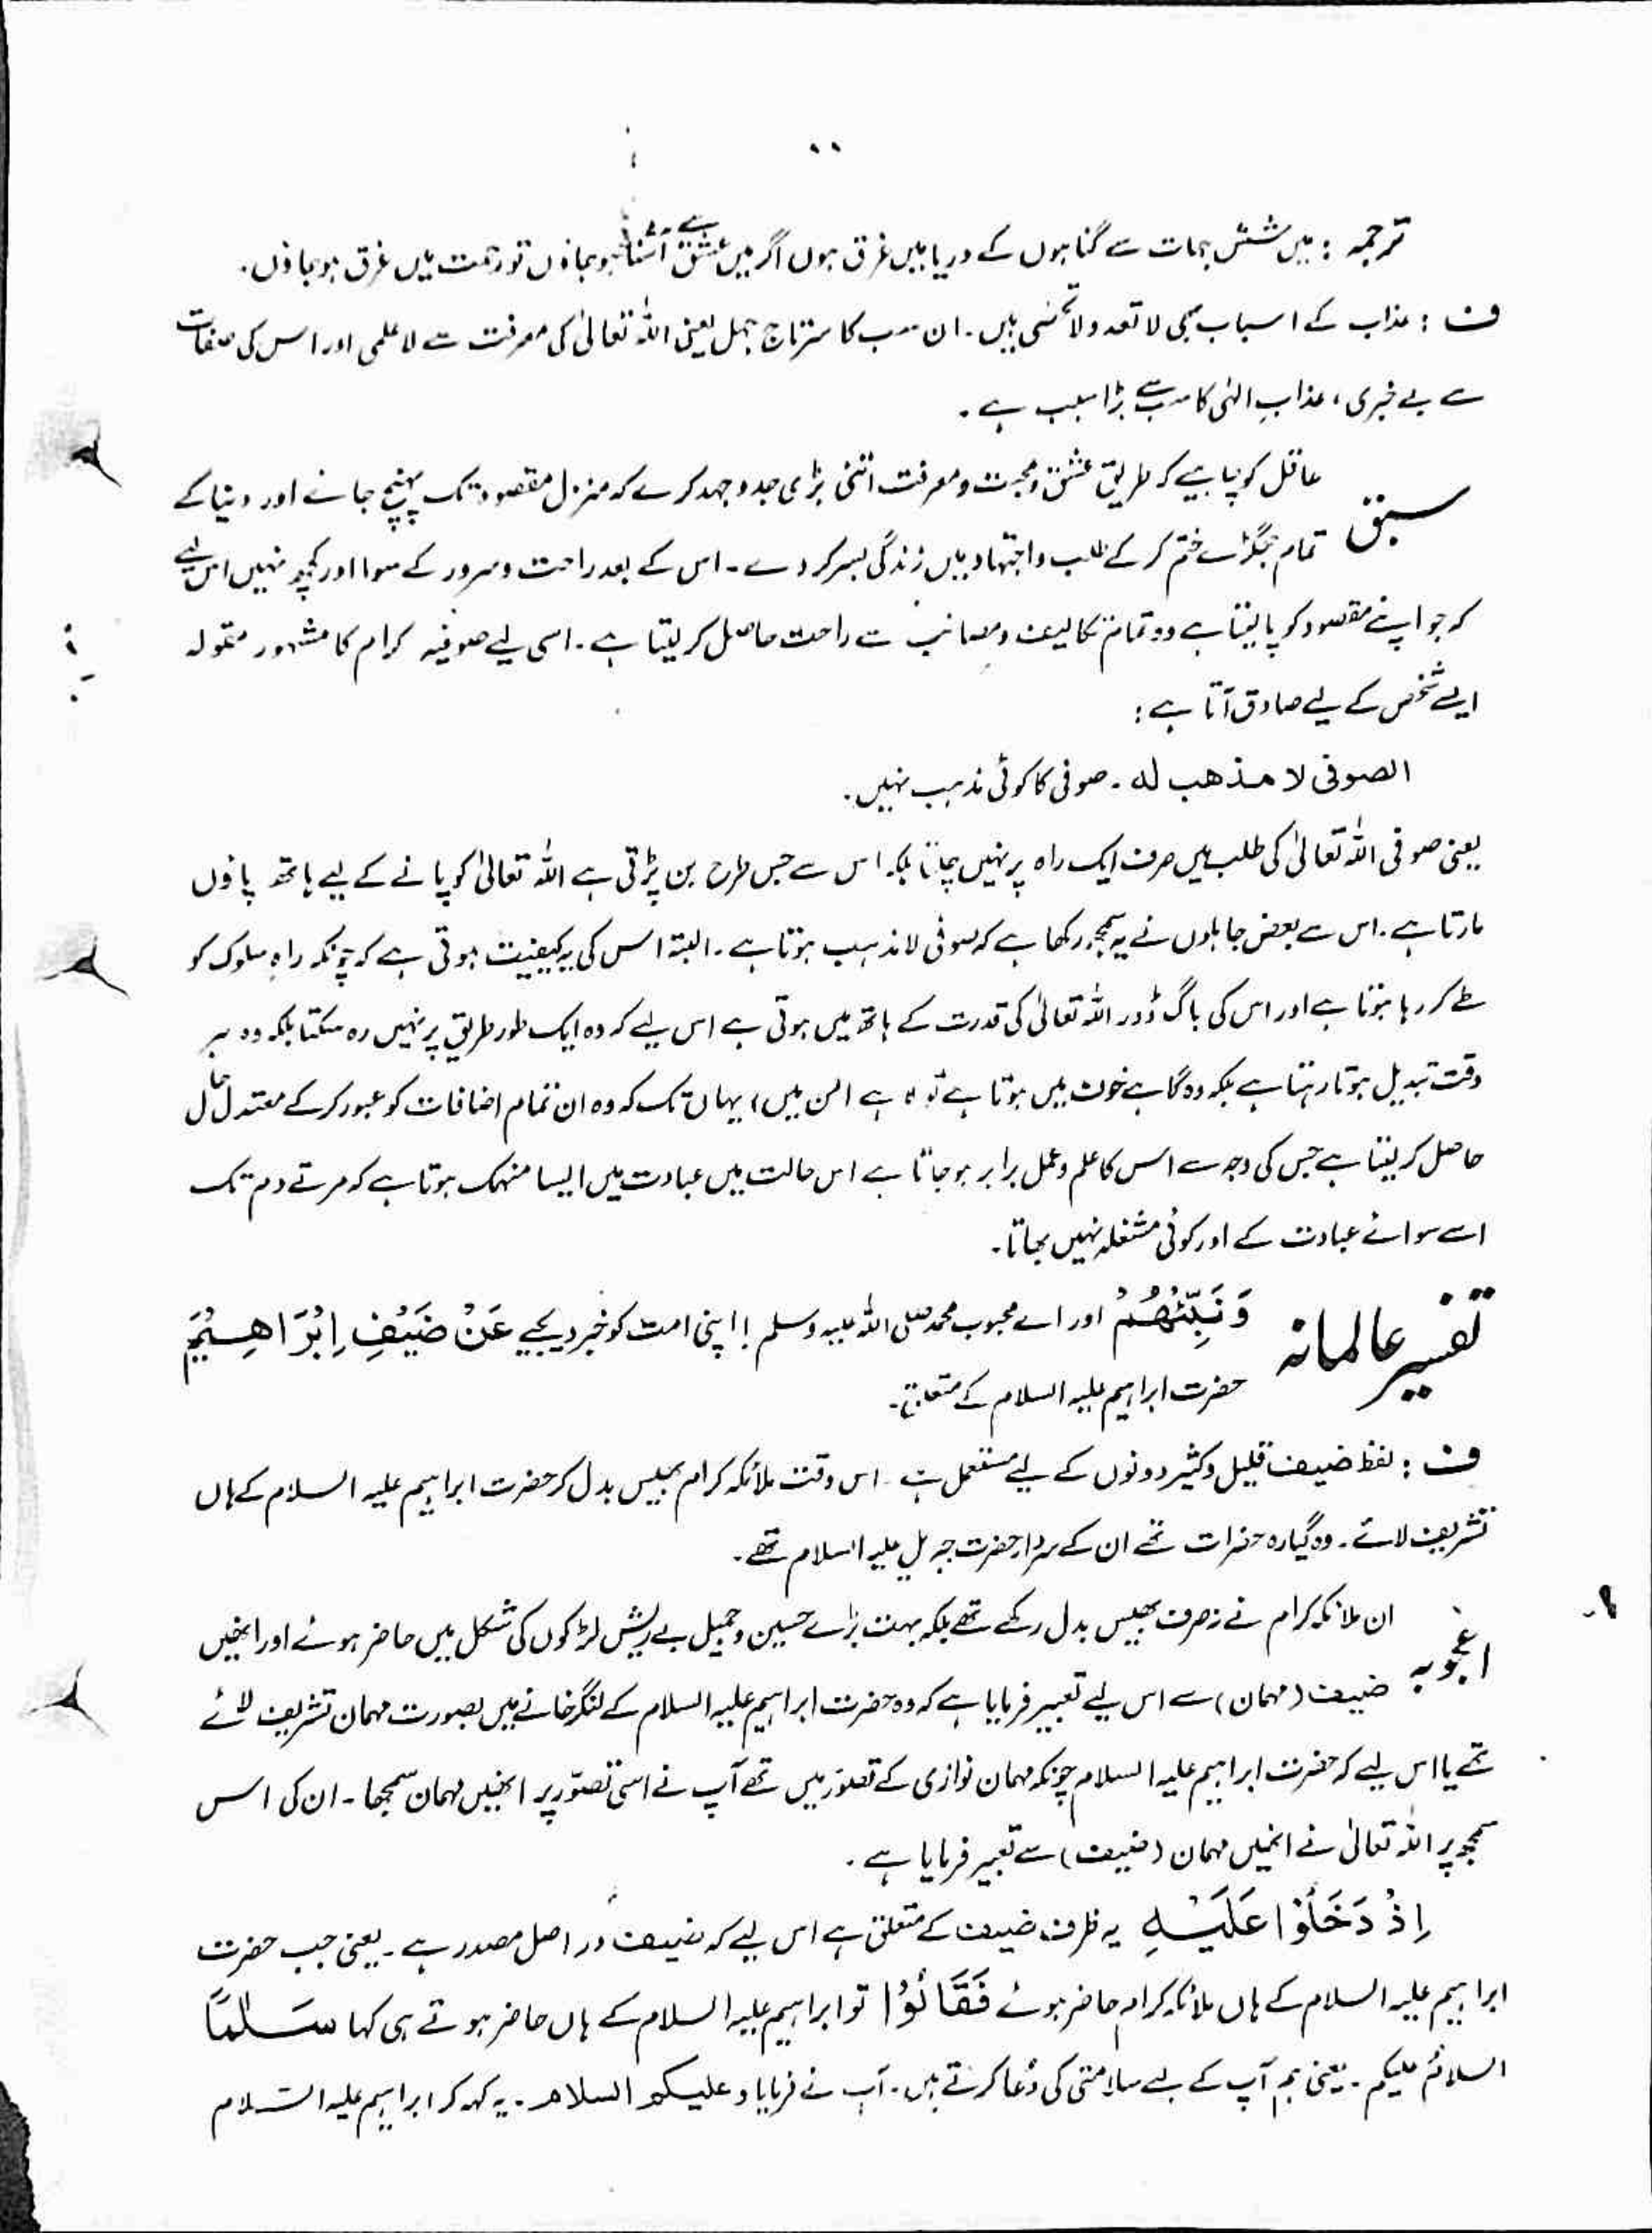 ترجمہ : میں شش جہات سے گناہوں کے دریا میں غرق ہوں اگر میں عشق سے آشنا ہو جاؤں تو رحمت میں غرق ہو جاؤں۔
ف : عذاب کے اسباب بھی لا تعد ولا تحصٰی ہیں۔ ان سب کا سرتاج جہل یعنی اللہ تعالیٰ کی معرفت سے لا علمی اور اس کی صفات
سے بے خبری، عذابِ الٰہی کا سب سے بڑا سبب ہے۔
سبق عاقل کو چاہیے کہ طریق عشق و محبت و معرفت اتنی بڑی جدوجہد کرے کہ منزل مقصود تک پہنچ جانے اور دنیا کے
تمام جھگڑے ختم کر کے طلب و اجتہاد میں زندگی بسر کر دے۔ اس کے بعد راحت و سرور کے سوا اور کچھ نہیں اس لیے
کہ جو اپنے مقصود کو پا لیتا ہے وہ تمام تکالیف و مصائب سے راحت حاصل کر لیتا ہے۔ اسی لیے صوفیہ کرام کا مشہور مقولہ
ایسے شخص کے لیے صادق آتا ہے :
الصوفی لا مذھب لہ۔ صوفی کا کوئی مذہب نہیں۔
یعنی صوفی اللہ تعالیٰ کی طلب میں صرف ایک راہ پر نہیں چلتا بلکہ اس سے جس طرح بن پڑتی ہے اللہ تعالیٰ کو پانے کے لیے ہاتھ پاؤں
مارتا ہے۔ اس سے بعض جاہلوں نے یہ سمجھ رکھا ہے کہ صوفی لا مذہب ہوتا ہے۔ البتہ اس کی یہ کیفیت ہوتی ہے کہ چونکہ راہِ سلوک کو
طے کر رہا ہوتا ہے اور اس کی باگ ڈور اللہ تعالیٰ کی قدرت کے ہاتھ میں ہوتی ہے اس لیے کہ وہ ایک طور طریق پر نہیں رہ سکتا بلکہ وہ ہر
وقت تبدیل ہوتا رہتا ہے بلکہ وہ گاہے خوف میں ہوتا ہے تو گاہے امن میں، یہاں تک کہ وہ ان تمام اضافات کو عبور کر کے معتدل حال
حاصل کر لیتا ہے جس کی وجہ سے اس کا علم و عمل برابر ہو جاتا ہے اس حالت میں عبادت میں ایسا منہمک ہوتا ہے کہ مرتے دم تک
اسے سوائے عبادت کے اور کوئی مشغلہ نہیں بھاتا۔
تفسیر عالمانہ وَنَبِّئْهُمْ اور اے محبوب محمد صلی اللہ علیہ وسلم ! اپنی امت کو خبر دیجیے عَنْ ضَيْفِ اِبْرَاهِيْمَ
حضرت ابراہیم علیہ السلام کے متعلق۔
ف : لفظ ضیف قلیل و کثیر دونوں کے لیے مستعمل ہے۔ اس وقت ملائکہ کرام بھیس بدل کر حضرت ابراہیم علیہ السلام کے ہاں
تشریف لائے۔ وہ گیارہ حضرات تھے ان کے سردار حضرت جبریل علیہ السلام تھے۔
اعجوبہ ان ملائکہ کرام نے نہ صرف بھیس بدل رکھے تھے بلکہ بہت بڑے حسین و جمیل بے ریش لڑکوں کی شکل میں حاضر ہوئے اور انھیں
ضیف (مہمان) سے اس لیے تعبیر فرمایا ہے کہ وہ حضرت ابراہیم علیہ السلام کے لنگر خانے میں بصورت مہمان تشریف لائے
تھے یا اس لیے کہ حضرت ابراہیم علیہ السلام چونکہ مہمان نوازی کے تصور میں تھے آپ نے اسی تصور پر انھیں مہمان سمجھا۔ ان کی اس
سمجھ پر اللہ تعالیٰ نے انھیں مہمان (ضیف) سے تعبیر فرمایا ہے۔
اِذْ دَخَلُوْا عَلَيْهِ یہ ظرف ضیف کے متعلق ہے اس لیے کہ ضیف در اصل مصدر ہے۔ یعنی جب حضرت
ابراہیم علیہ السلام کے ہاں ملائکہ کرام حاضر ہوئے فَقَالُوْا تو ابراہیم علیہ السلام کے ہاں حاضر ہوتے ہی کہا سَلٰمًا
السلام علیکم۔ یعنی ہم آپ کے لیے سلامتی کی دُعا کرتے ہیں۔ آپ نے فرمایا وعلیکم السلام۔ یہ کہہ کر ابراہیم علیہ السلام